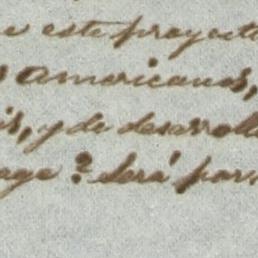 e este proyecto
s Americanos,
is, y de desarrolla
aga? Será par